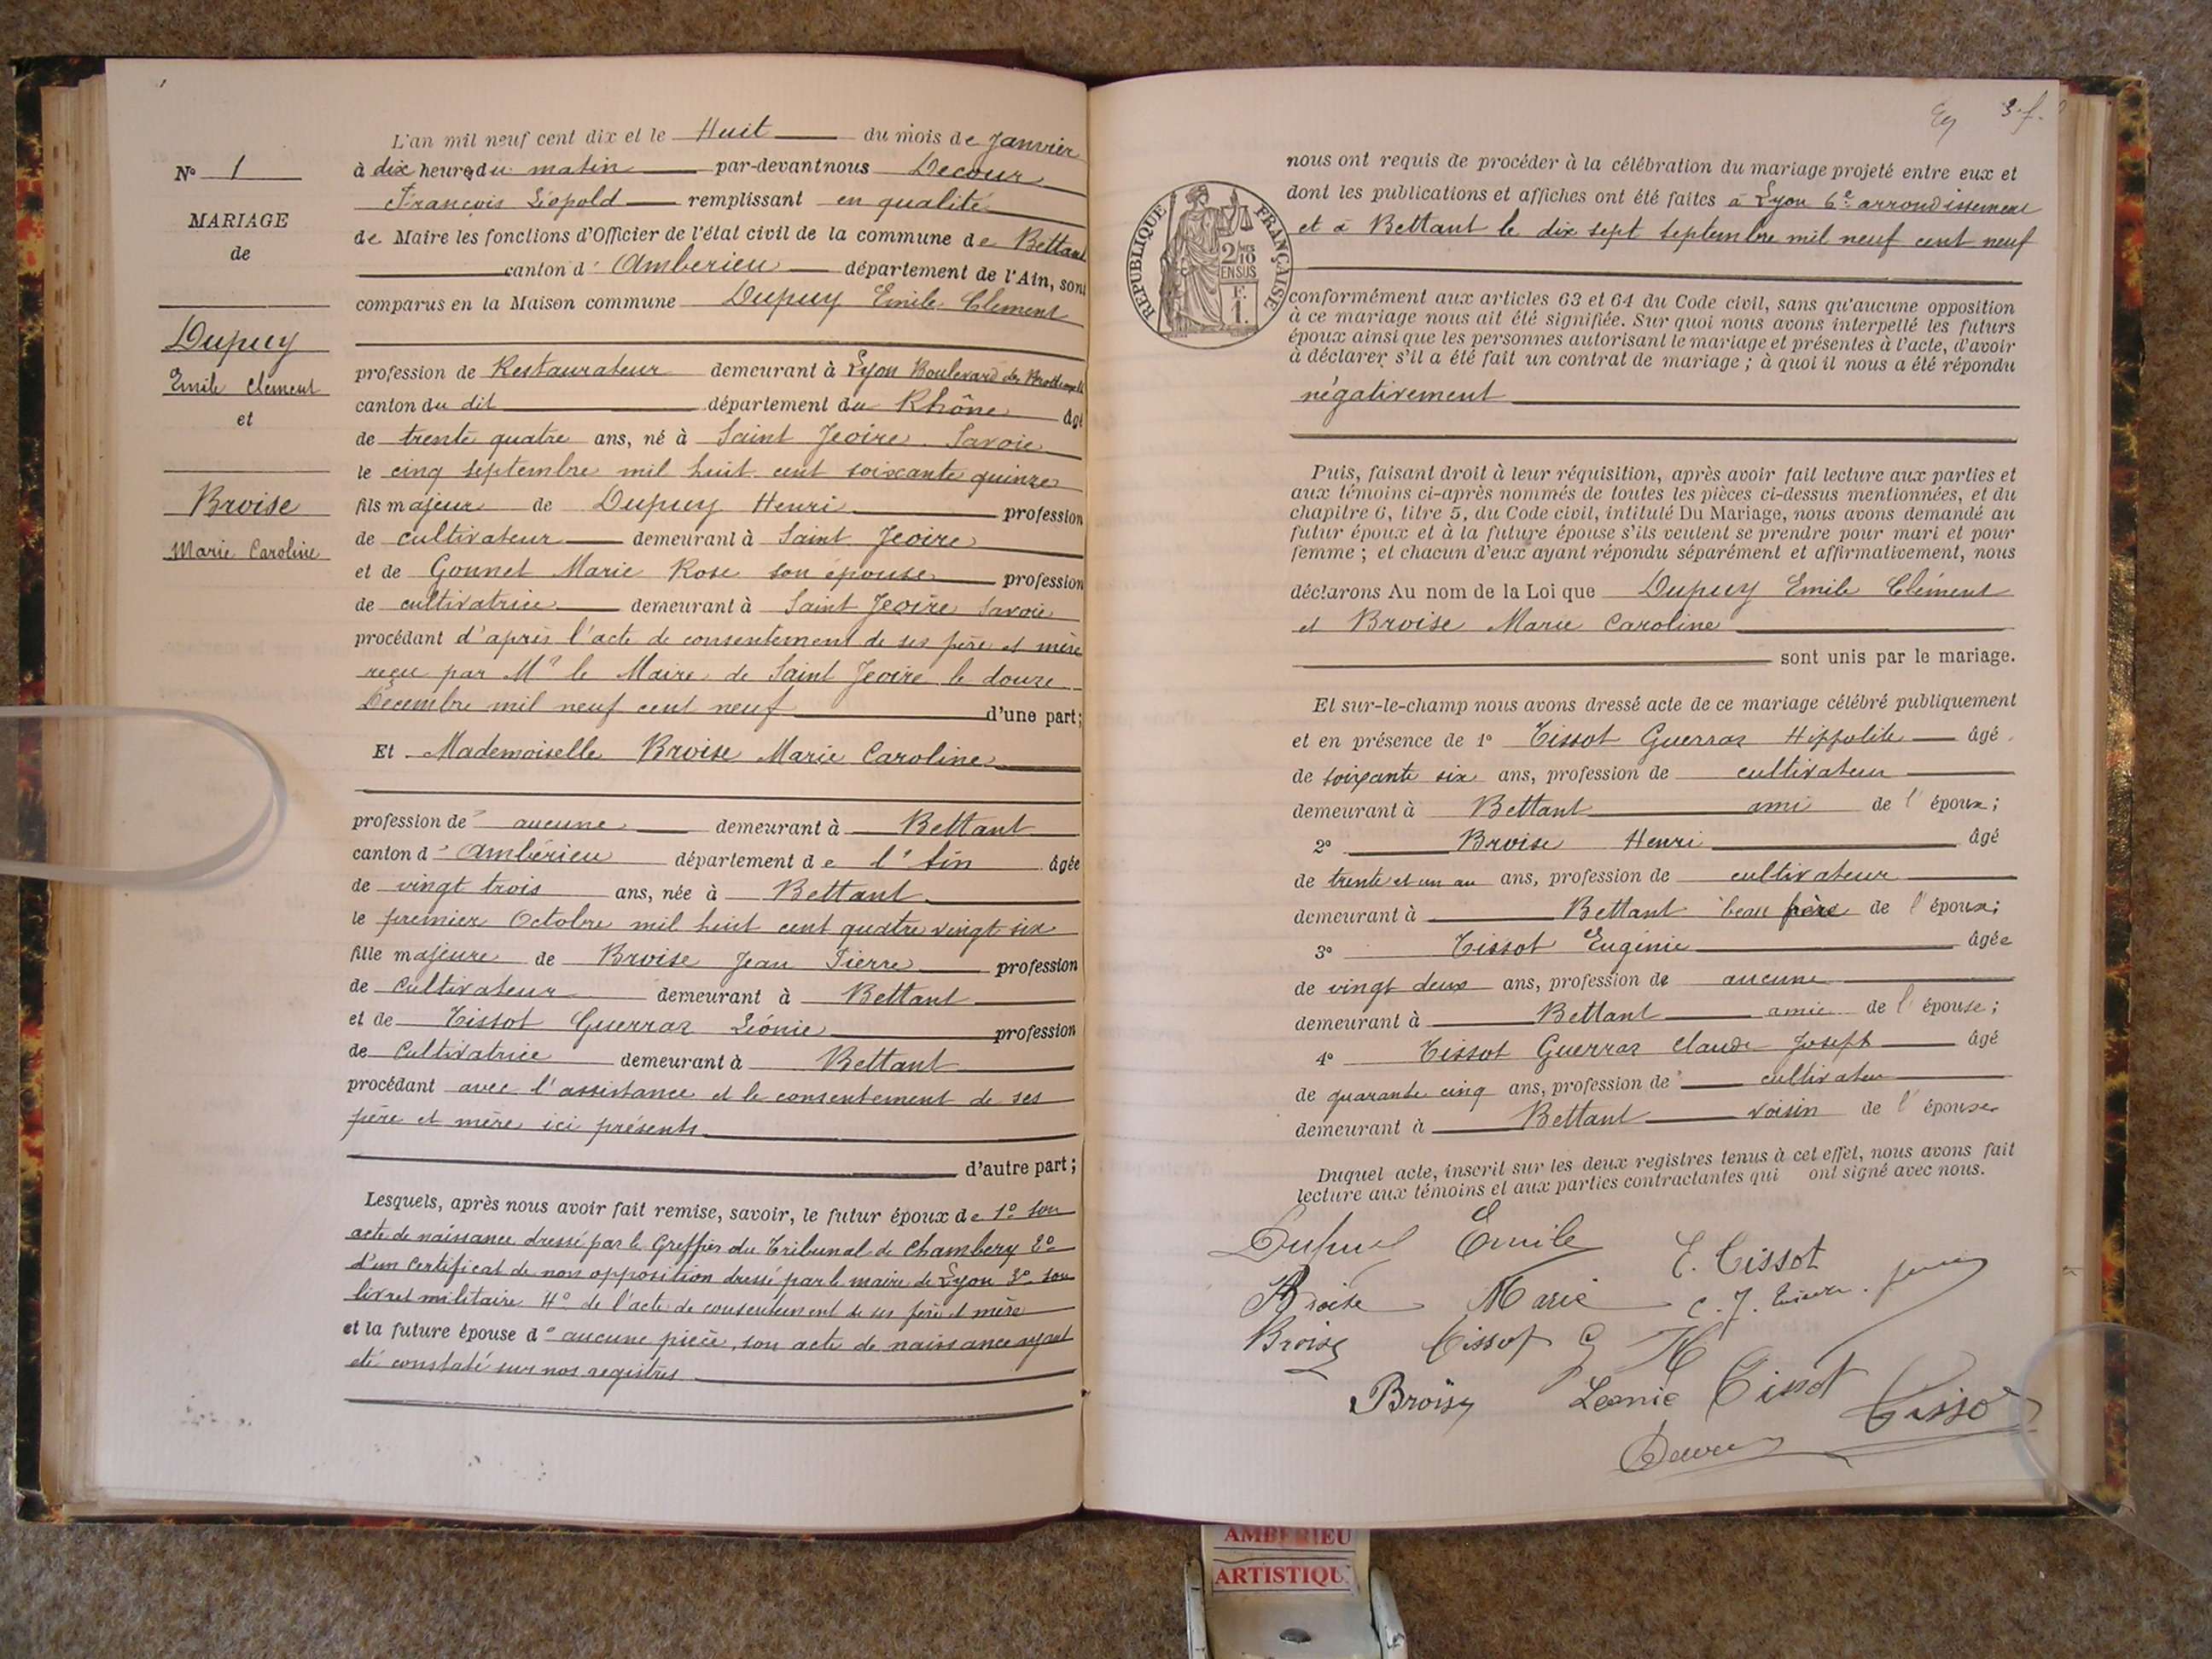 L'an mil neuf cent dix et le Huit du mois de Janvier
N° 1
à dix heures du matin par-devant nous Decour
François Léopold remplissant en qualité
MARIAGE
de
de Maire les fonctions d'Officier de l'état civil de la commune de Bettant
canton d'Amberieu département de l'Ain, sont
comparus en la Maison commune Dupuy Emile Clement
Dupuy
Emile Clément
et
Broise
Marie Caroline
profession de Restaurateur demeurant à Lyon Boulevard des
canton du dit département du Rhône âgé
de trente quatre ans, né à Saint Jeoire Savoie
le cinq septembre mil huit cent soixante quinze
fils majeur de Dupuy Henri profession
de cultivateur demeurant à Saint Jeoire
et de Gonnet Marie Rose son épouse profession
de cultivatrice demeurant à Saint Jeoire Savoie
procédant d'après l'acte de consentement de ses père et mère
reçu par Mr le Maire de Saint Jeoire le douze
Décembre mil neuf cent neuf d'une part;
Et Mademoiselle Broise Marie Caroline
profession de aucune demeurant à Bettant
canton d'Ambérieu département de l'Ain âgée
de vingt trois ans, née à Bettant
le premier Octobre mil huit cent quatre vingt six
fille majeure de Broise Jean Pierre profession
de Cultivateur demeurant à Bettant
et de Tissot Guerraz Léonie profession
de Cultivatrice demeurant à Bettant
procédant avec l'assistance et le consentement de ses
père et mère ici présents
d'autre part;
Lesquels, après nous avoir fait remise, savoir, le futur époux de 1° son
acte de naissance dressé par le Greffier du Tribunal de Chambery 2°
d'un Certificat de non opposition dressé par le maire de Lyon 3° son
livret militaire 4° de l'acte de consentement de ses père et mère
et la future épouse d'aucune pièce, son acte de naissance ayant
été constaté sur nos registres
3 f.
nous ont requis de procéder à la célébration du mariage projeté entre eux et
dont les publications et affiches ont été faites à Lyon 6e arrondissement
et à Bettant le dix sept septembre mil neuf cent neuf
RÉPUBLIQUE FRANÇAISE
2/10
EN SUS
F.
1.
conformément aux articles 63 et 64 du Code civil, sans qu'aucune opposition
à ce mariage nous ait été signifiée. Sur quoi nous avons interpellé les futurs
époux ainsi que les personnes autorisant le mariage et présentes à l'acte, d'avoir
à déclarer s'il a été fait un contrat de mariage ; à quoi il nous a été répondu
négativement
Puis, faisant droit à leur réquisition, après avoir fait lecture aux parties et
aux témoins ci-après nommés de toutes les pièces ci-dessus mentionnées, et du
chapitre 6, titre 5, du Code civil, intitulé Du Mariage, nous avons demandé au
futur époux et à la future épouse s'ils veulent se prendre pour mari et pour
femme ; et chacun d'eux ayant répondu séparément et affirmativement, nous
déclarons Au nom de la Loi que Dupuy Emile Clément
et Broise Marie Caroline
sont unis par le mariage.
Et sur-le-champ nous avons dressé acte de ce mariage célébré publiquement
et en présence de 1° Tissot Guerraz Hippolite âgé
de soixante six ans, profession de cultivateur
demeurant à Bettant ami de l'époux;
2° Broise Henri âgé
de trente et un an ans, profession de cultivateur
demeurant à Bettant beau frère de l'époux;
3° Tissot Eugénie âgée
de vingt deux ans, profession de aucune
demeurant à Bettant amie de l'épouse;
4° Tissot Guerraz Claude Joseph âgé
de quarante cinq ans, profession de cultivateu
demeurant à Bettant voisin de l'épouse
Duquel acte, inscrit sur les deux registres tenus à cet effet, nous avons fait
lecture aux témoins et aux parties contractantes qui ont signé avec nous.
Dupuy Emile
E. Tissot
Broise Marie
C. J.
Broise Tissot G H
Broise Léonie Tissot Tissot
Decour
AMBERIEU
ARTISTIQU